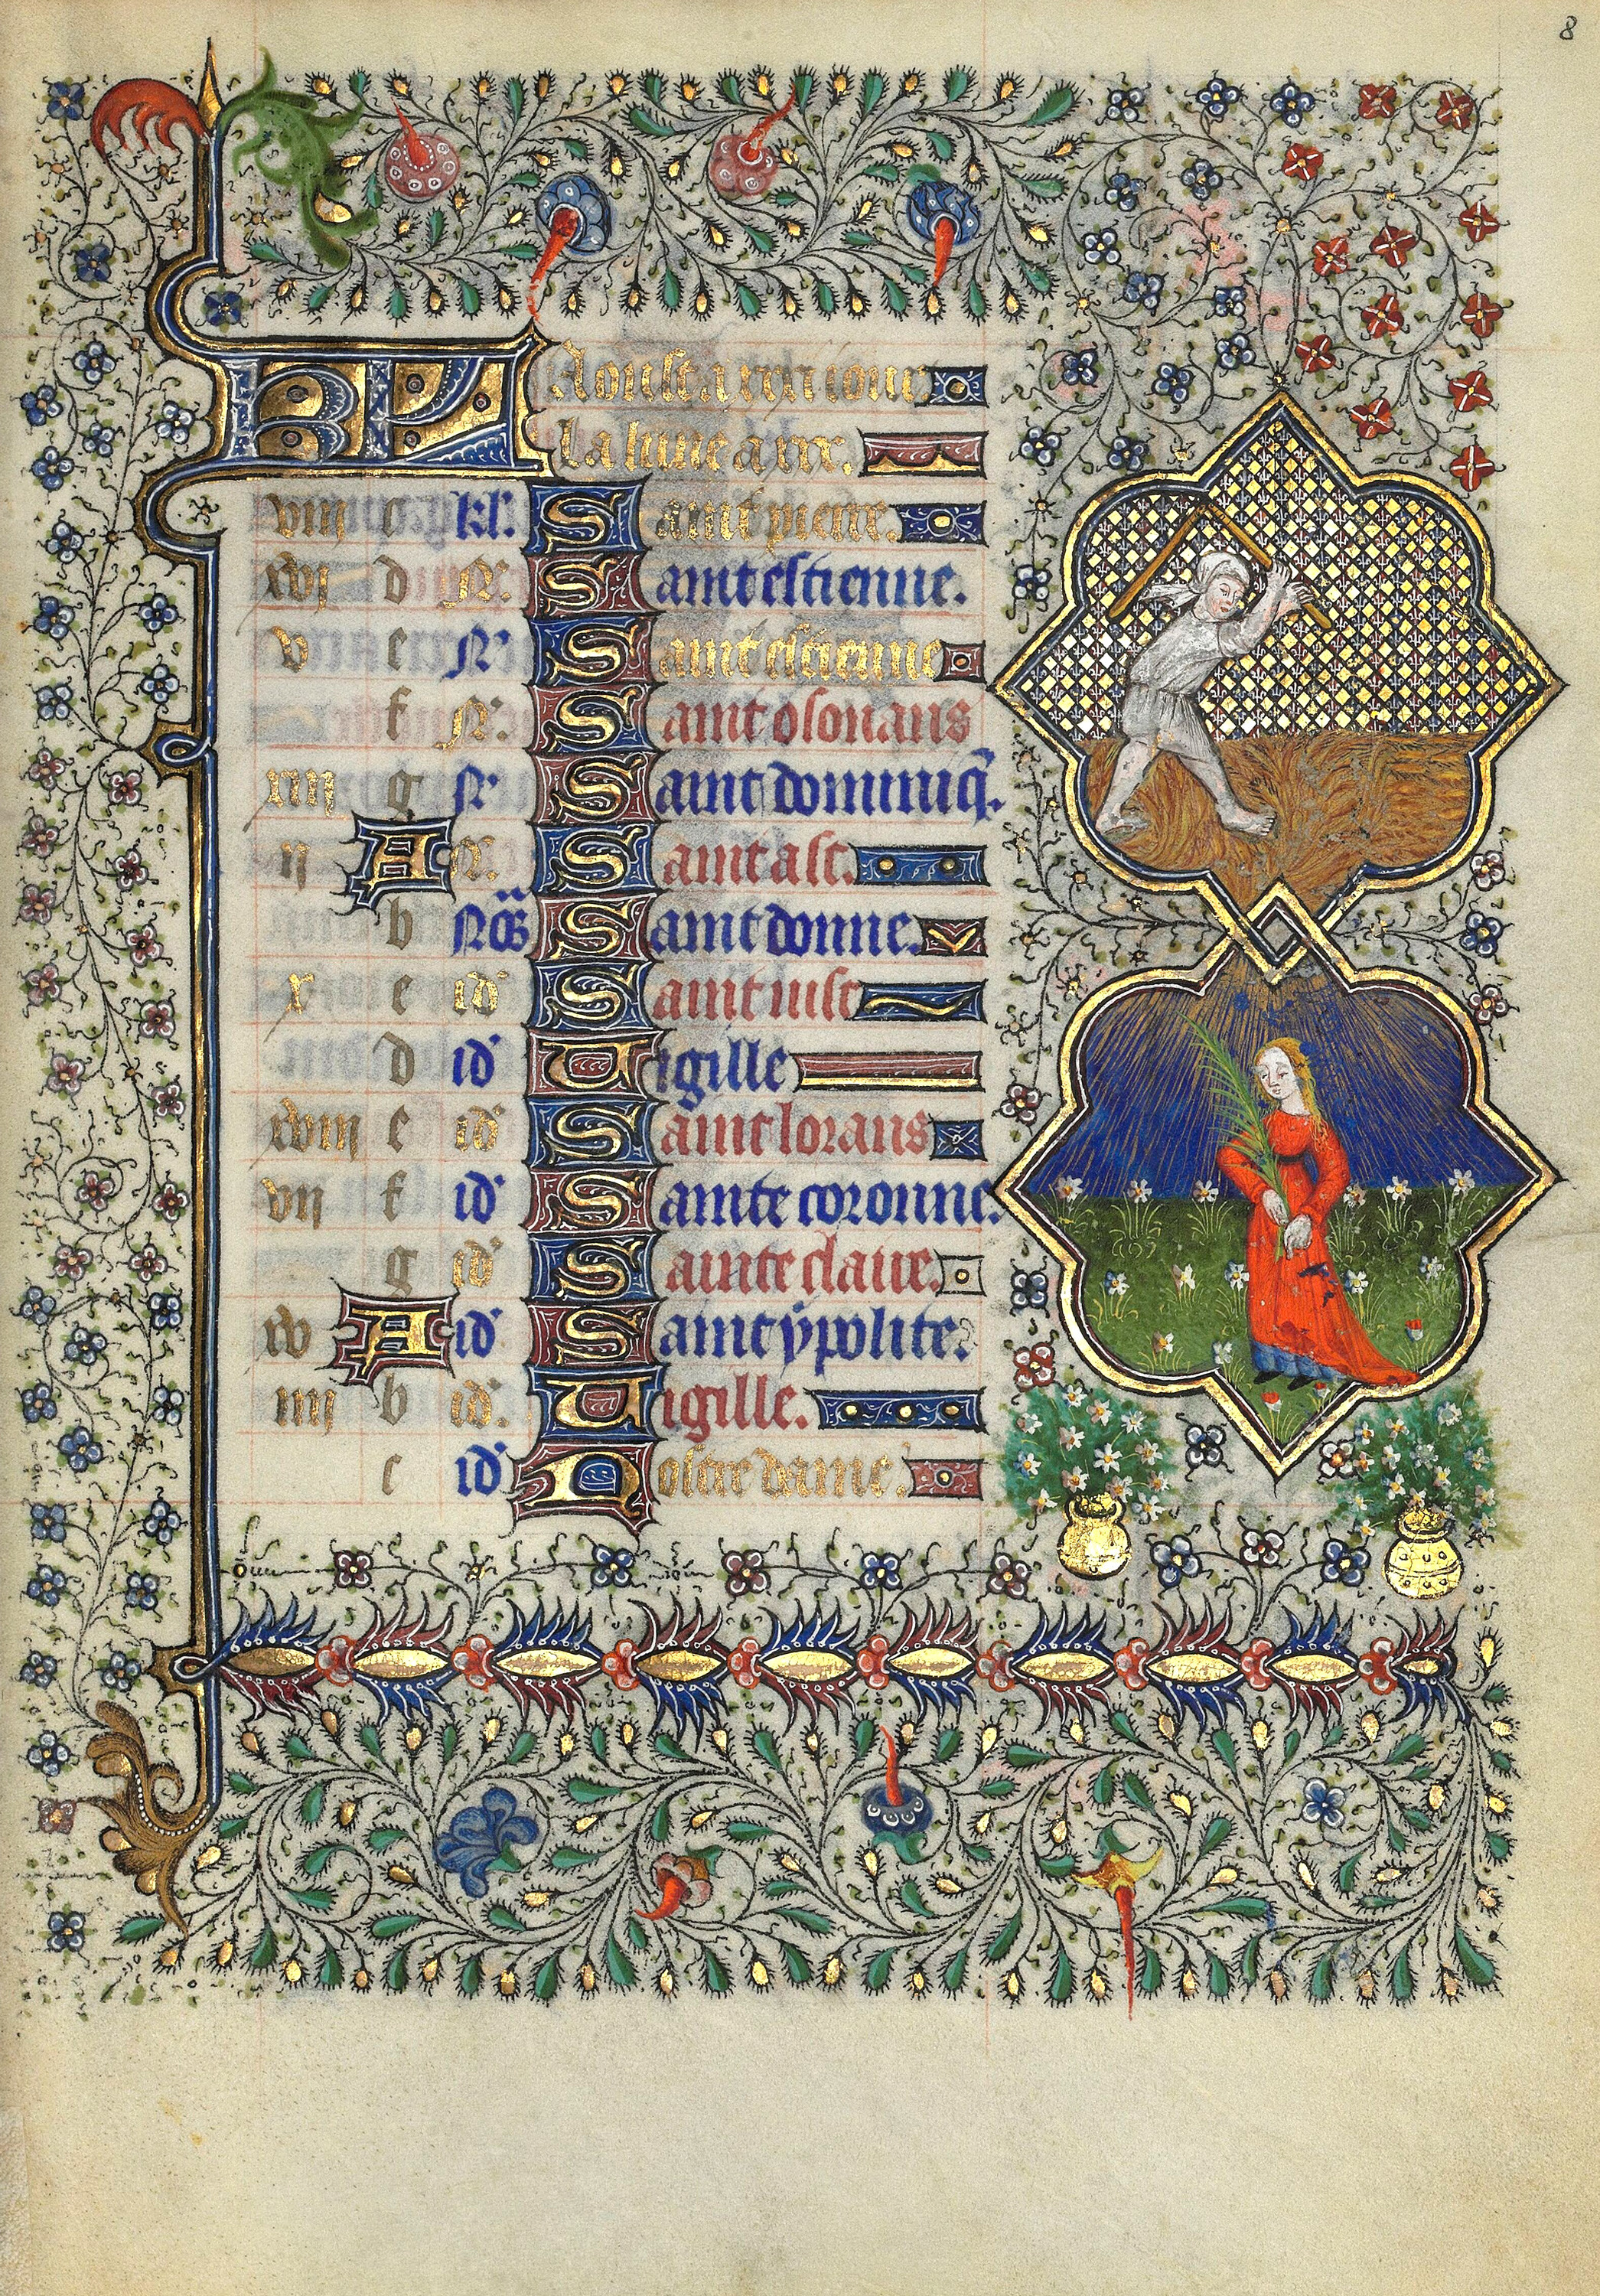 8
KL Aoust a xxxi iour
la lune a xxx.
viii c kl'. Saint pierre.
xvi d N'. Saint estienne.
v e N'. Saint estienne
f N'. Saint osouans
xiii g N'. Saint dominiq̃.
ii A N'. Saint
b Nōs Saint donne.
x c id' Saint iust
d id' Vigille
xviii e id' Saint lorans
vii f id' Sainte coronne.
g id' Sainte claire.
xv A id' Saint ypolite.
iiii b id'. Vigille.
c id' Nostre dame.